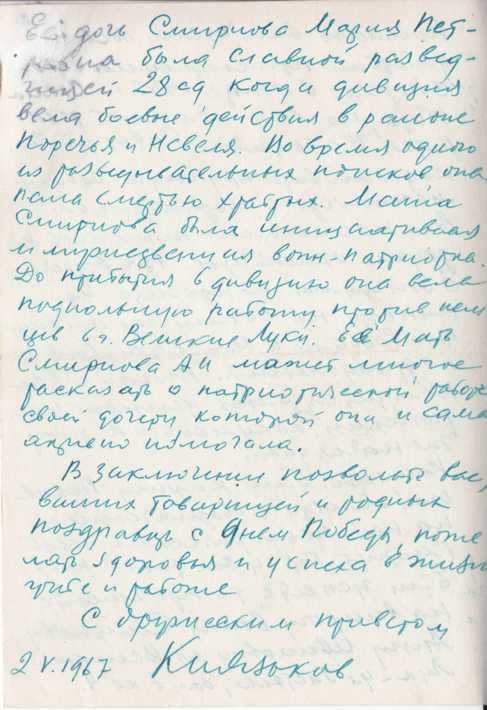 Её дочь Смирнова Мария Пет-
ровна была славной развед-
чицей 28 сд когда дивизия
вела боевые действия в районе
Поречья и Невеля. Во время одного
из разведывательных поисков она
пала смертью храбрых. Маша
Смирнова была инициативная
и воин-патриотка.
До прибытия в дивизию она вела
подпольную работу против нем
цев в г. Великие Луки. Её Мать
Смирнова А И может многое
рассказать о патриотической работе
своей дочери которой она и сама
активно помогала.
В заключении позвольте вас,
ваших товарищей и родных
поздравить с Днем Победы поже
лать здоровья и успеха в жизни
учебе и работе
С дружеским приветом
2 V. 1967 Князьков